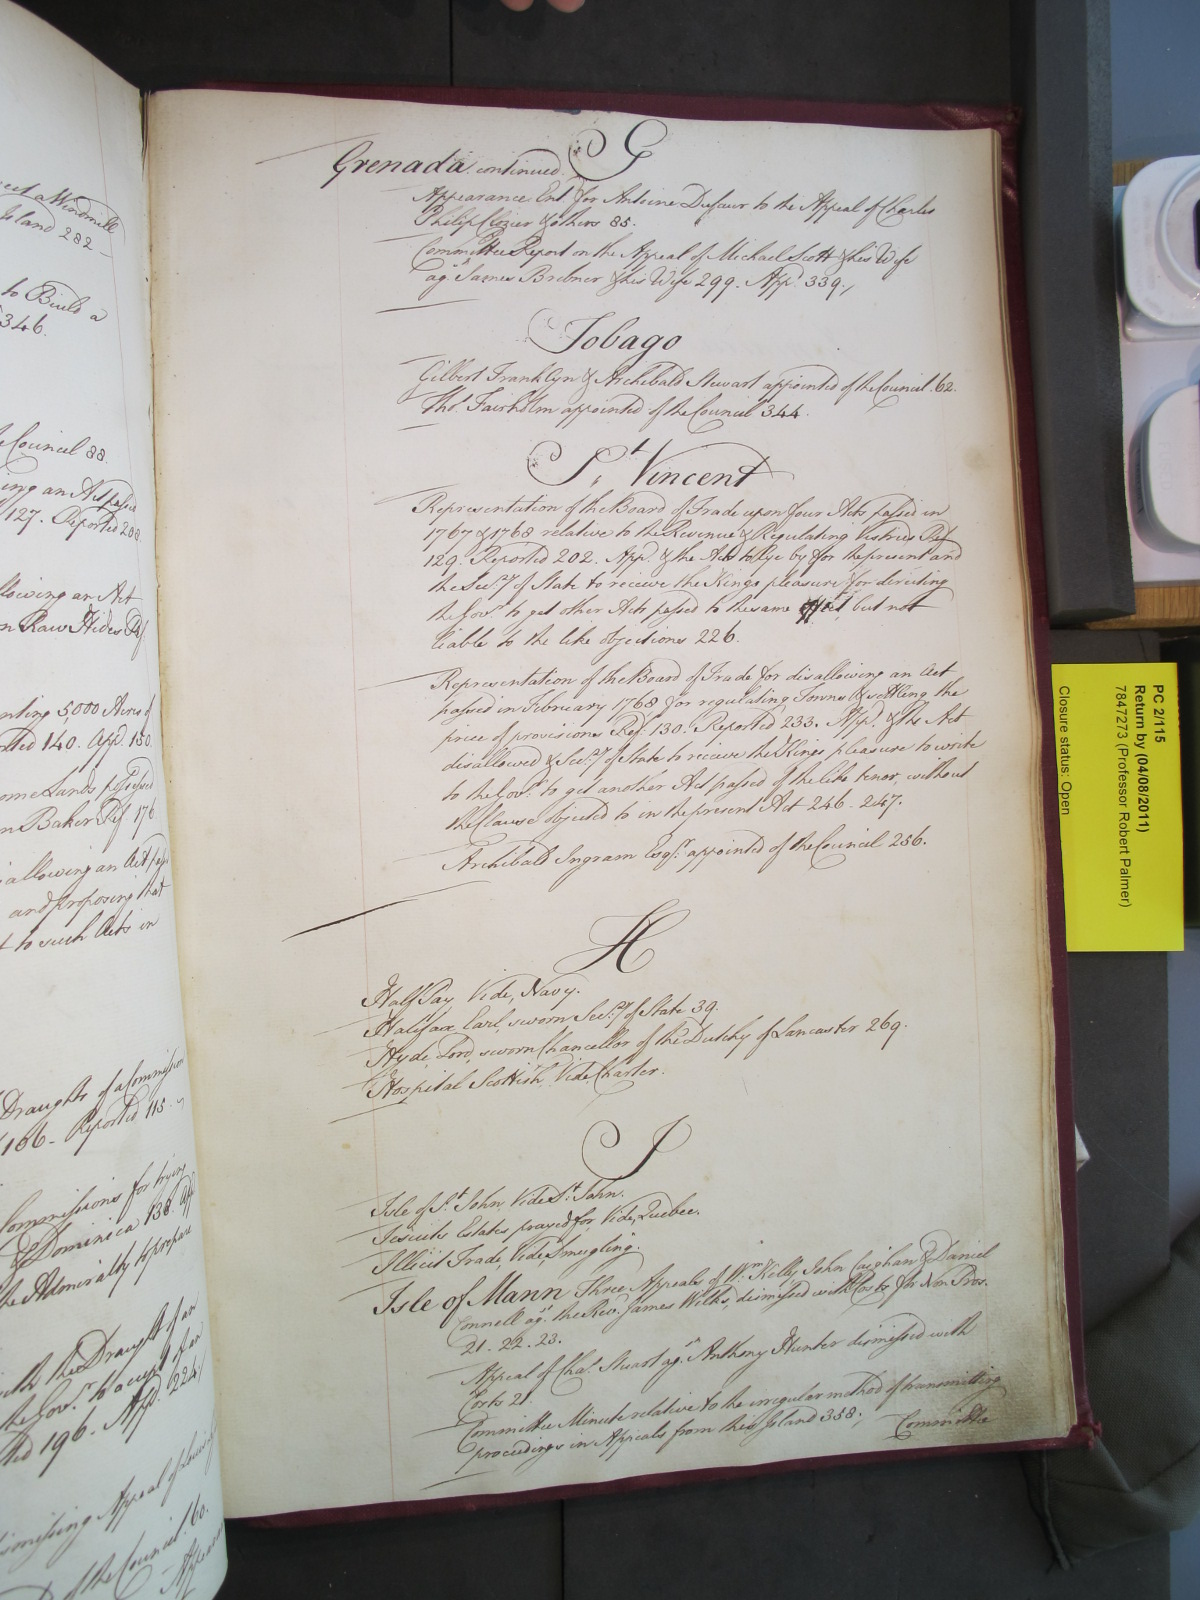 G
Grenada continued
Appearance Ent. for Antoine Dufaur to the Appeal of Charles
Philip Clozier & others 85.
Committee Report on the Appeal of Michael Scott & his Wife
ag. James Brebner & his Wife 299. App.d 339.
Tobago
Gilbert Franklyn & Archibald Stewart appointed of the Council. 62.
Tho.s Fairholm appointed of the Council 344.
S.t Vincent
Representation of the Board of Trade upon four Acts passed in
1767 & 1768 relative to the Revenue & Regulating Vestries Ref.
129. Reported 202. App.d & the Acts to lye by for the present and
the Sec.ry of State to receive the Kings pleasure for directing
the Gov.r to get other Acts passed to the same effect, but not
liable to the like objections 226.
Representation of the Board of Trade for disallowing an Act
passed in February 1768 for regulating Towns & settling the
price of provisions Ref. 130. Reported 233. App.d & the Act
disallowed & Sec.ry of State to receive the Kings pleasure to write
to the Gov.r to get another Act passed of the like tenor, without
the Clause objected to in the present Act 246-247.
Archibald Ingram Esq.r appointed of the Council 256.
H
Half Pay, Vide, Navy.
Halifax Earl, sworn Sec.ry of State 39.
Hyde, Lord, sworn Chancellor of the Dutchy of Lancaster 269.
Hospital Scottish, Vide Charter.
I
Isle of S.t John, Vide S.t John.
Jesuits Estates prayed for, Vide, Quebec.
Illicit Trade, Vide, Smugling.
Isle of Mann Three Appeals of W.m Kelly, John Caighan & Daniel
Connell ag.st the Rev.d James Wilks, dismissed with Costs for Non Pros.
21. 22. 23.
Appeal of Cha.s Stuart ag.st Anthony Hunter dismissed with
Costs 21.
Committee Minute relative to the irregular method of transmitting
proceedings in Appeals from this Island 358.
Committee
PC 2/115
Return by (04/08/2011)
7847273 (Professor Robert Palmer)
Closure status: Open
a Windmill
Island 282
to Build a
346.
Council 88
ing an Act passed
127. Reported 208
llowing an Act
n Raw Hides Ref.
nting 5,000 Acres of
ted 140. App.d 150
ome Lands possessed
n Baker Ref. 176
allowing an Act
and proposing that
to such Acts in
Draughts of a Commission
106- Reported 115.
Commissions for trying
& Dominica 138
the Admiralty to prepare
with the Draught of an
the Gov.r to accept of an
ted 196. App.d 224
ismissing Appeal of
of the Council 60.